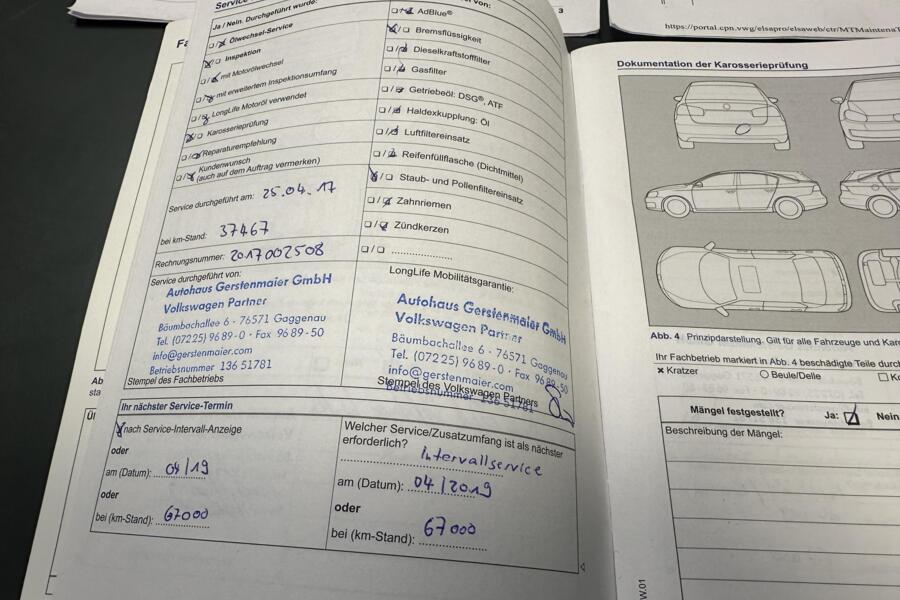 3
https://portal.cpn.vwg/elsapro/elsaweb/ctr/MTMaintena
Ja / Nein. Durchgeführt wurde:
Ölwechsel-Service
Inspektion
mit Motorölwechsel
mit erweitertem Inspektionsumfang
LongLife Motoröl verwendet
Karosserieprüfung
Reparaturempfehlung
Kundenwunsch
(auch auf dem Auftrag vermerken)
Service durchgeführt am: 25.04.17
bei km-Stand: 37467
Rechnungsnummer: 2017002508
AdBlue®
Bremsflüssigkeit
Dieselkraftstofffilter
Gasfilter
Getriebeöl: DSG®, ATF
Haldexkupplung: Öl
Luftfiltereinsatz
Reifenfüllflasche (Dichtmittel)
Staub- und Pollenfiltereinsatz
Zahnriemen
Zündkerzen
Service durchgeführt von:
Autohaus Gerstenmaier GmbH
Volkswagen Partner
Bäumbachallee 6 · 76571 Gaggenau
Tel. (07225) 96 89-0 · Fax 96 89-50
info@gerstenmaier.com
Betriebsnummer 136 51781
Stempel des Fachbetriebs
LongLife Mobilitätsgarantie:
Autohaus Gerstenmaier GmbH
Volkswagen Partner
Bäumbachallee 6 · 76571 Gaggenau
Tel. (07225) 96 89-0 · Fax 96 89-50
info@gerstenmaier.com
Stempel des Volkswagen Partners
Betriebsnummer 136 51781
Ihr nächster Service-Termin
nach Service-Intervall-Anzeige
oder
am (Datum): 04/19
oder
bei (km-Stand): 67000
Welcher Service/Zusatzumfang ist als nächster
erforderlich?
Intervallservice
am (Datum): 04/2019
oder
bei (km-Stand): 67000
Dokumentation der Karosserieprüfung
Abb. 4 Prinzipdarstellung. Gilt für alle Fahrzeuge und Kar
Ihr Fachbetrieb markiert in Abb. 4 beschädigte Teile durch
Kratzer
Beule/Delle
Mängel festgestellt? Ja: Nein
Beschreibung der Mängel:
W.01